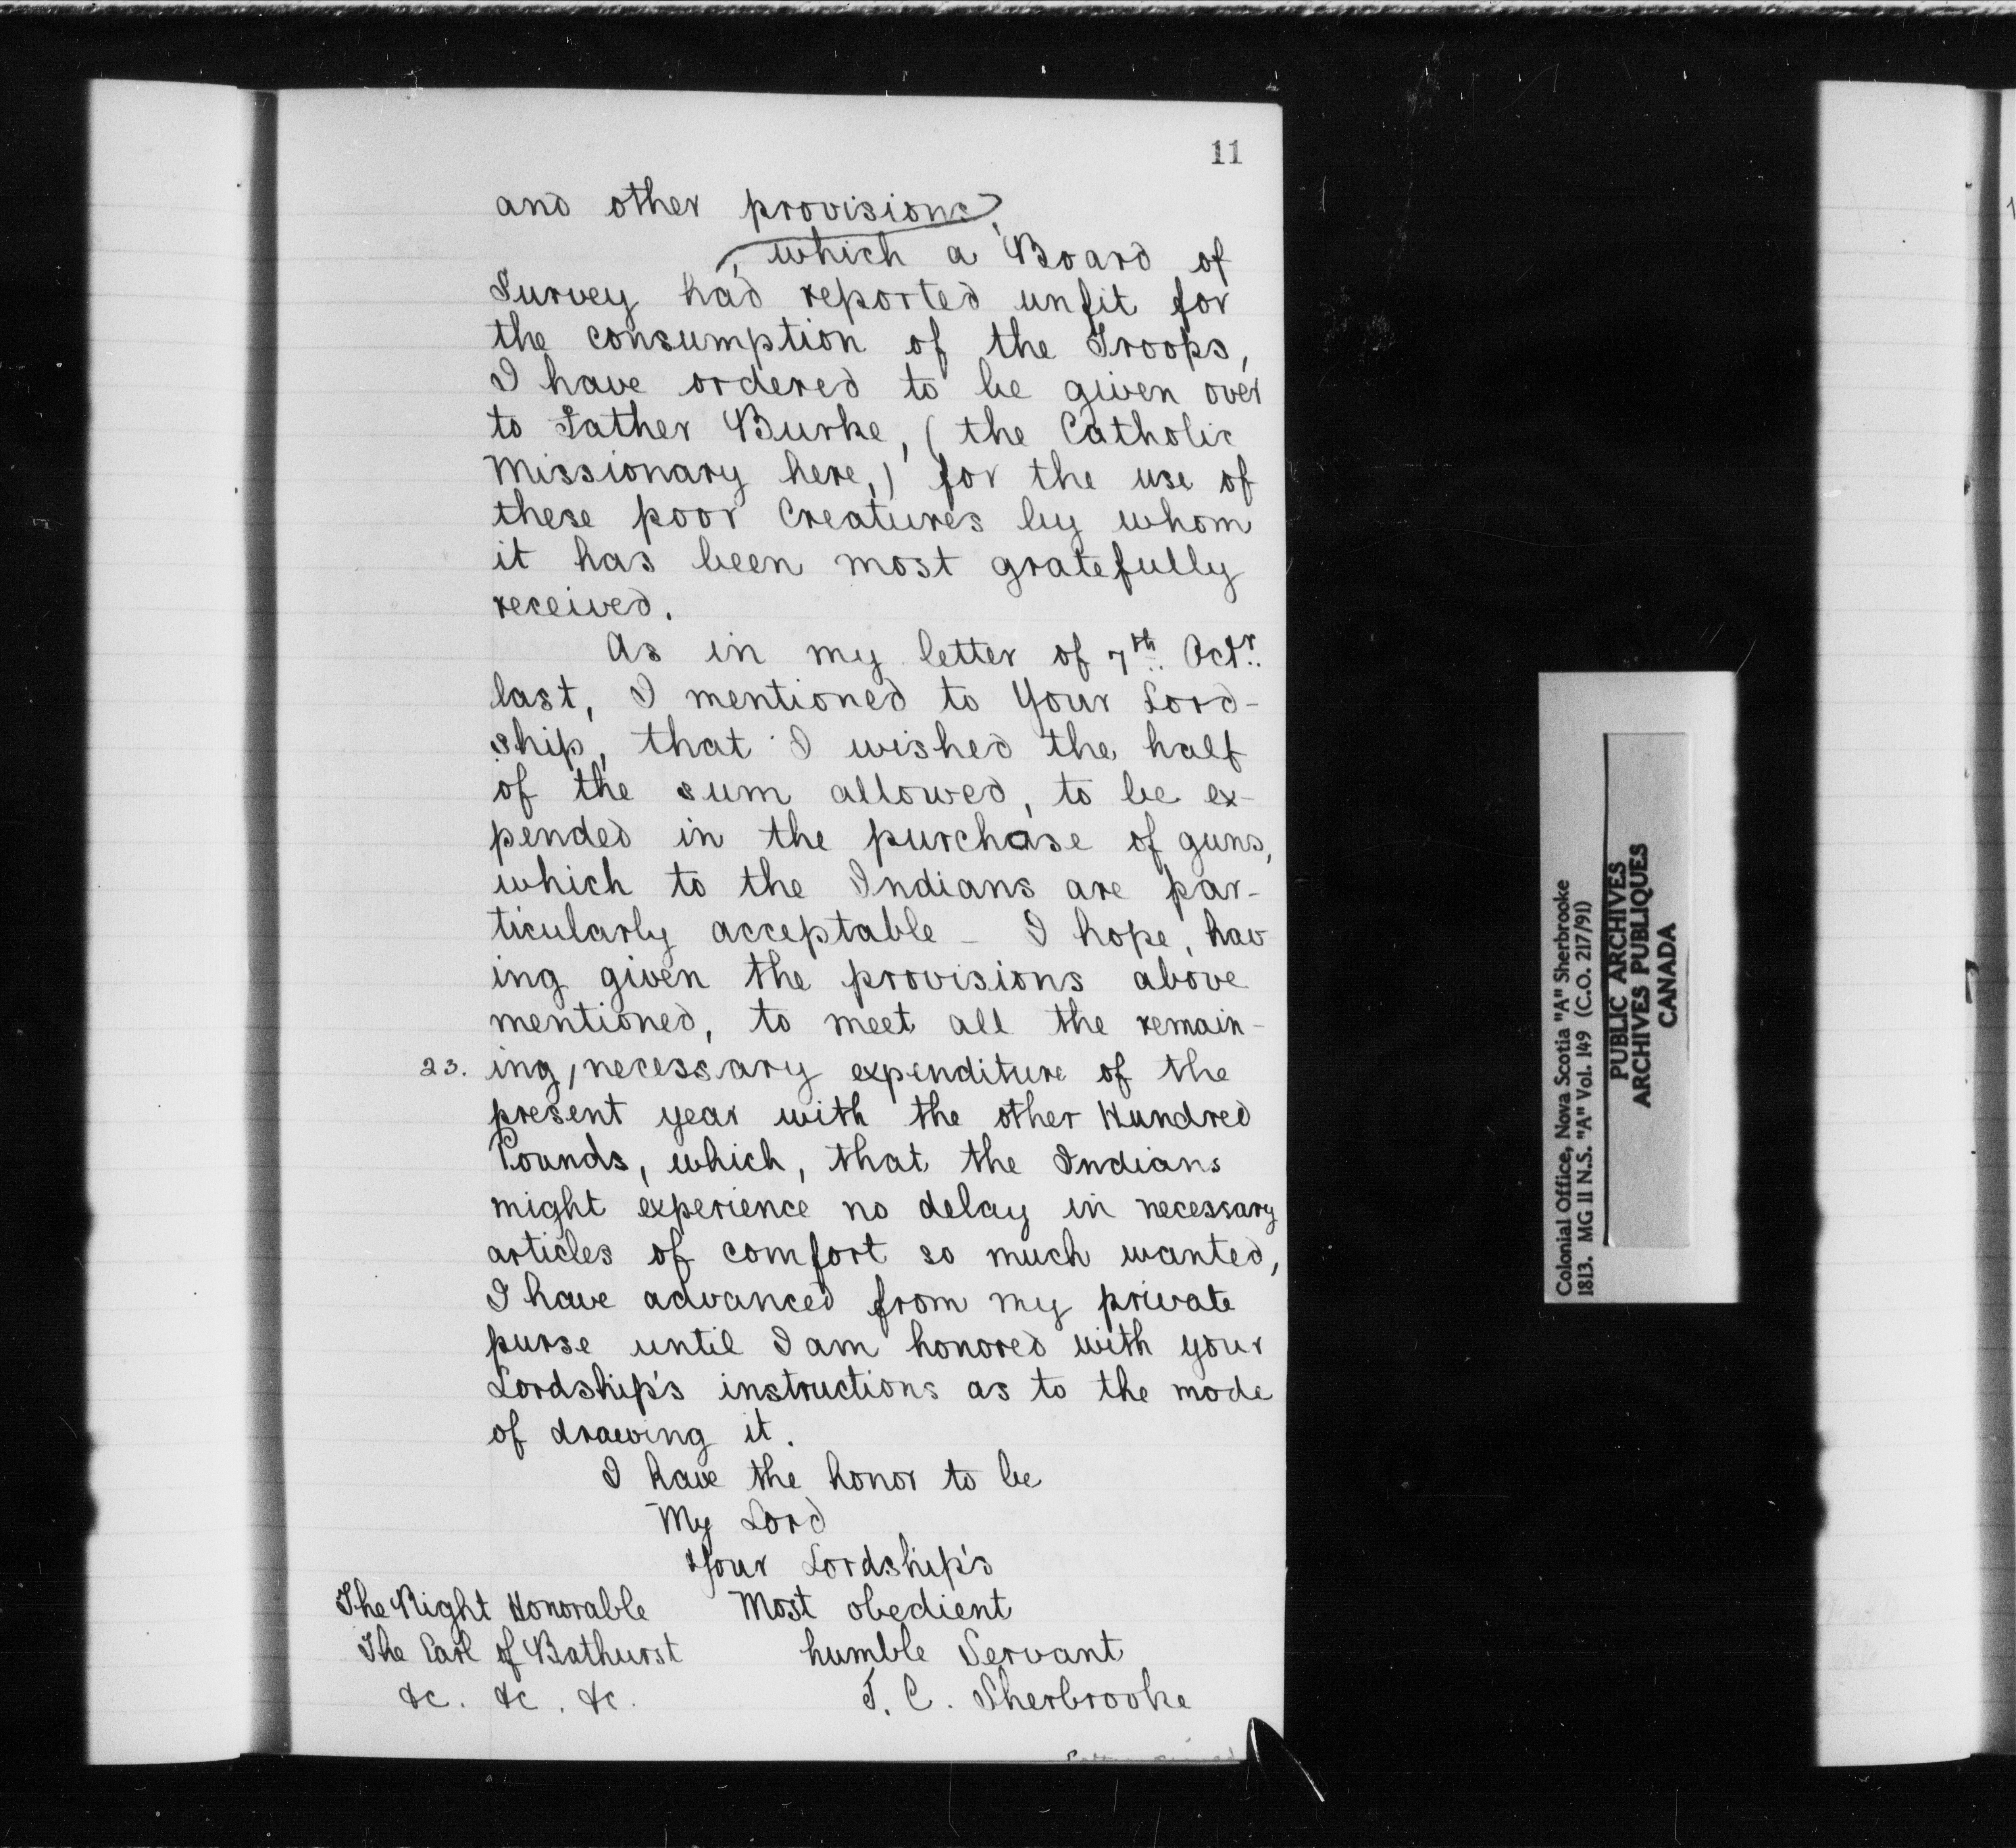 11
and other provisions,
, which a Board of
Survey had reported unfit for
the consumption of the Troops,
I have ordered to be given over
to Father Burke, (the Catholic
Missionary here,) for the use of
these poor Creatures by whom
it has been most gratefully
received.
As in my letter of 7th. Octr.
last, I mentioned to Your Lord-
ship, that I wished the half
of the sum allowed, to be ex-
pended in the purchase of guns,
which to the Indians are par-
ticularly acceptable - I hope, hav
ing given the provisions above
mentioned, to meet all the remain-
23. ing, necessary expenditure of the
present year with the other Hundred
Pounds, which, that the Indians
might experience no delay in necessary
articles of comfort so much wanted,
I have advanced from my private
purse until I am honored with your
Lordship's instructions as to the mode
of drawing it.
I have the honor to be
My Lord
Your Lordship's
Most obedient
humble Servant
J. C. Sherbrooke
The Right Honorable
The Earl of Bathurst
&c. &c. &c.
Colonial Office, Nova Scotia "A" Sherbrooke
1813. MG 11 N.S. "A" Vol. 149 (C.O. 217/91)
PUBLIC ARCHIVES
ARCHIVES PUBLIQUES
CANADA